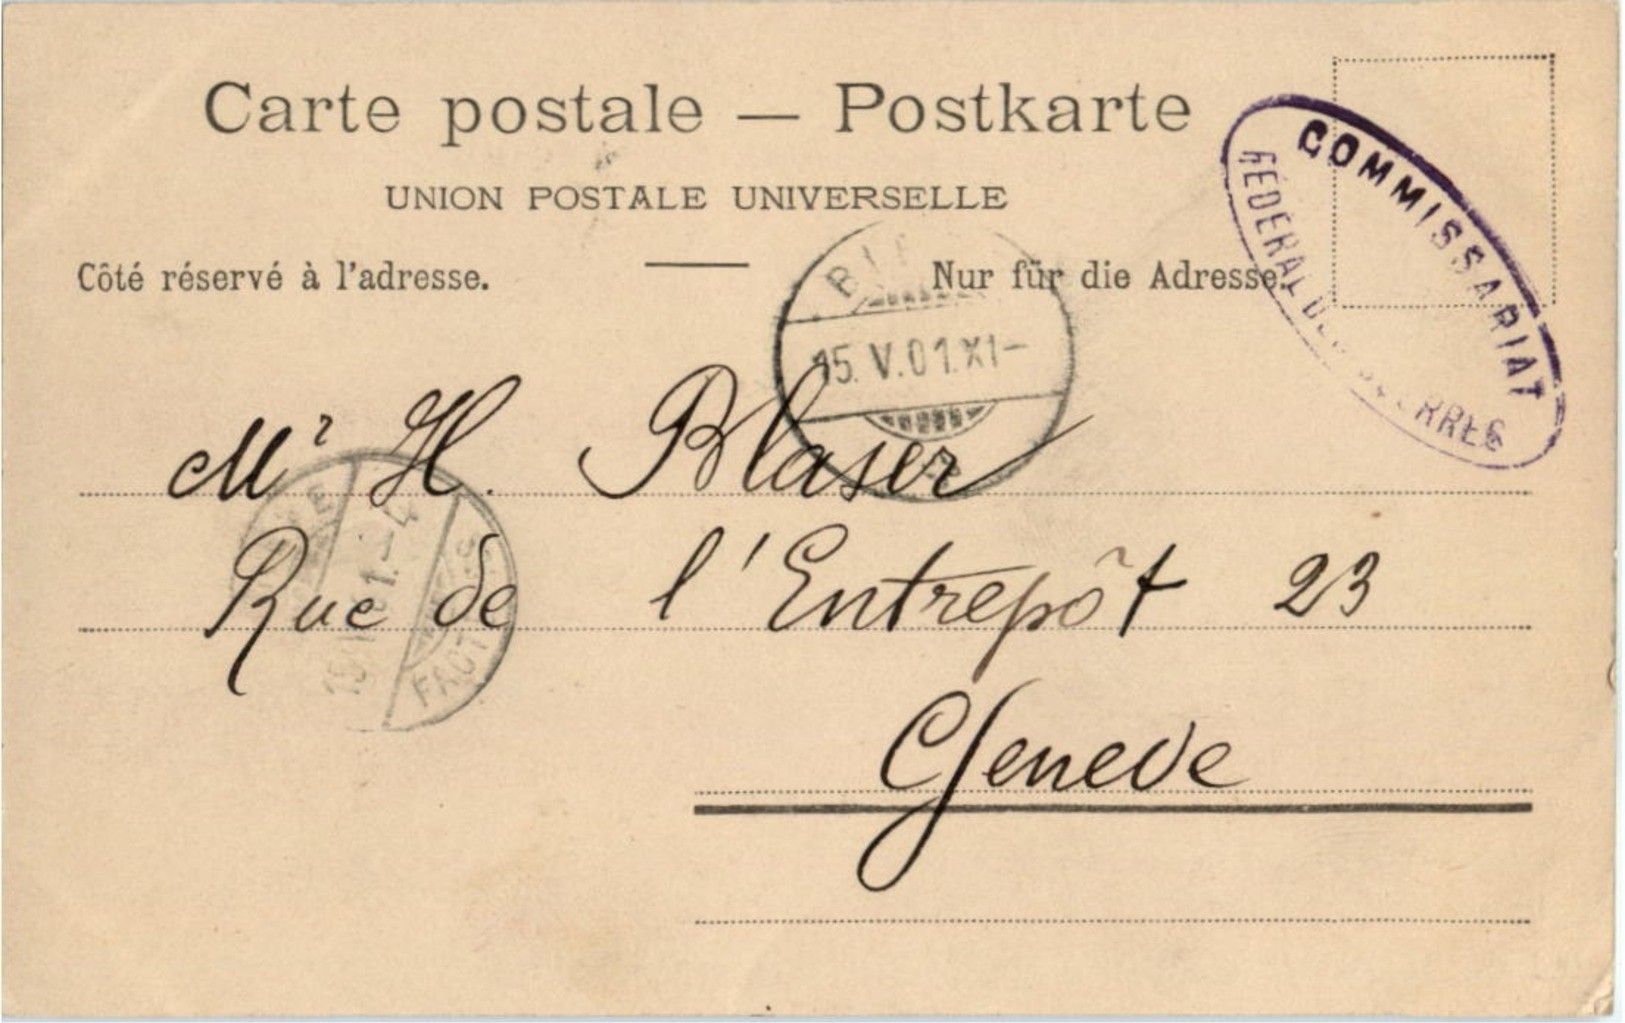 Carte postale — Postkarte
UNION POSTALE UNIVERSELLE
Côté réservé à l'adresse.
Nur für die Adresse.
COMMISSARIAT
FÉDÉRAL
15. V. 01. XI–
Mr H. Blaser
Rue de l'Entrepôt 23
Geneve
FACT